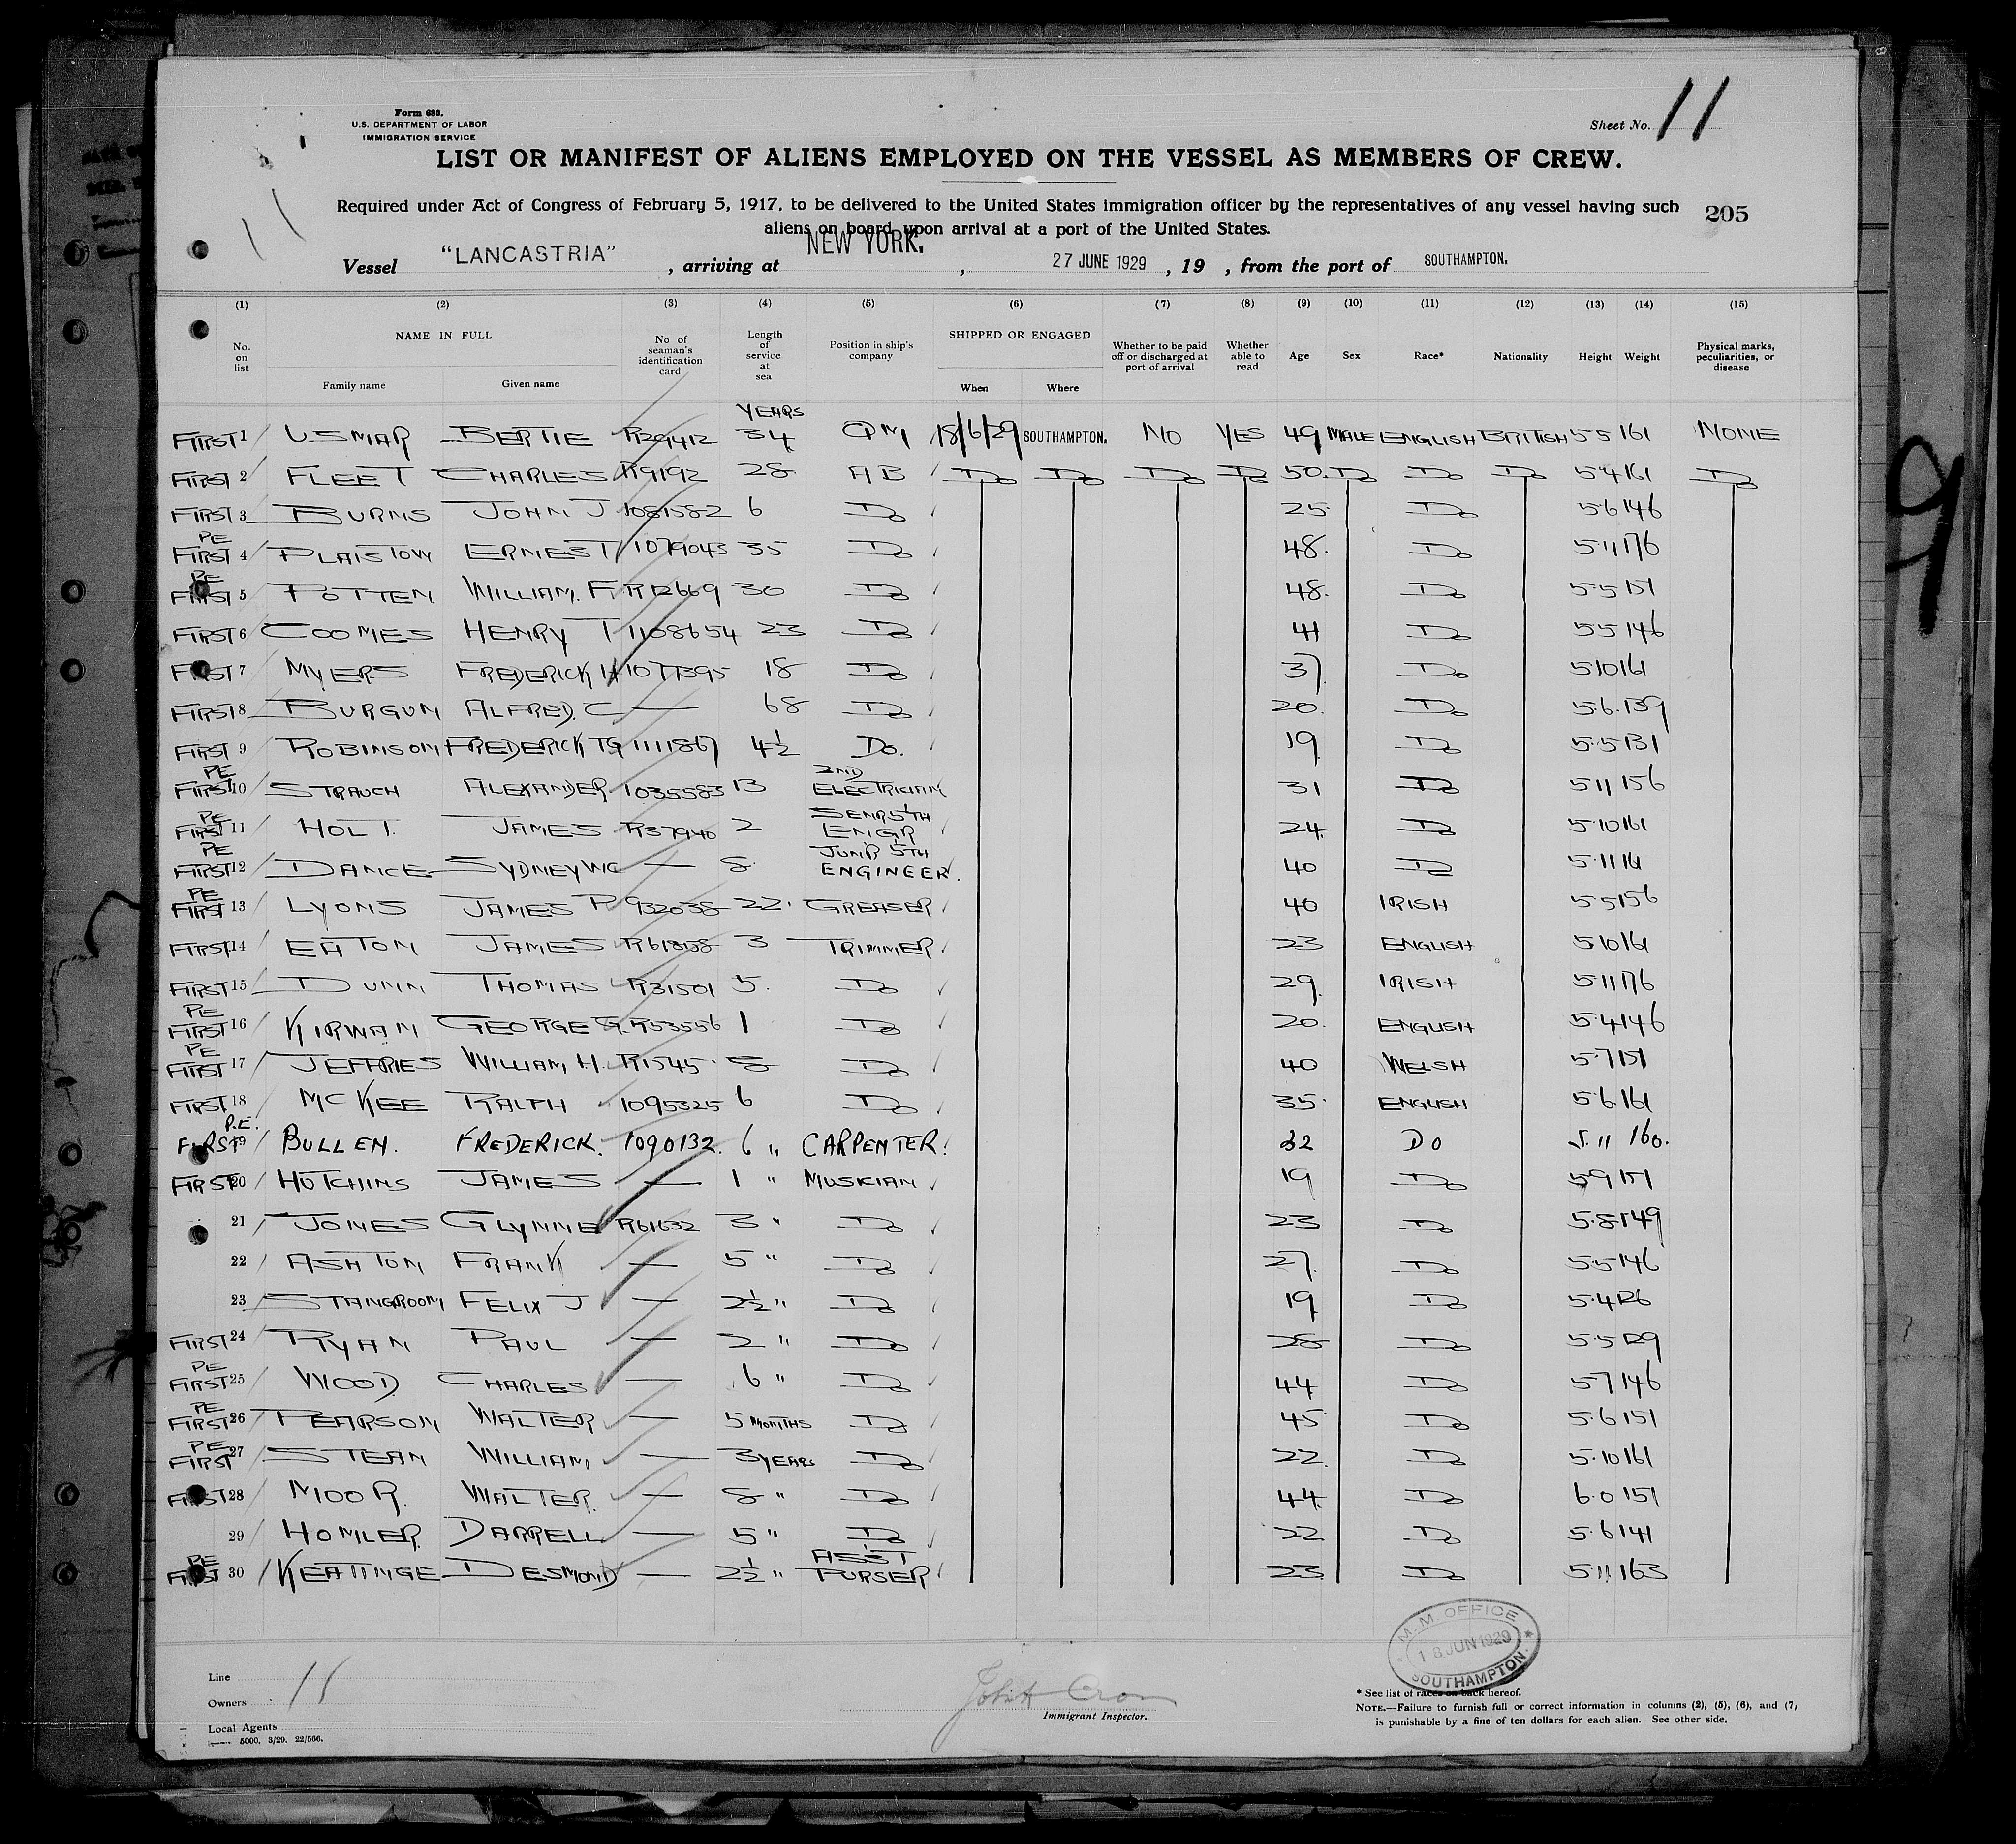 Form 680.
U.S. DEPARTMENT OF LABOR
IMMIGRATION SERVICE
Sheet No. 11
LIST OR MANIFEST OF ALIENS EMPLOYED ON THE VESSEL AS MEMBERS OF CREW.
Required under Act of Congress of February 5, 1917, to be delivered to the United States immigration officer by the representatives of any vessel having such
aliens on board upon arrival at a port of the United States.
205
11
Vessel "LANCASTRIA", arriving at NEW YORK., 27 JUNE 1929, 19 , from the port of SOUTHAMPTON.
(1) (2) (3) (4) (5) (6) (7) (8) (9) (10) (11) (12) (13) (14) (15)
No. on list NAME IN FULL Family name Given name No of seaman's identification card Length of service at sea Position in ship's company SHIPPED OR ENGAGED When Where Whether to be paid off or discharged at port of arrival Whether able to read Age Sex Race* Nationality Height Weight Physical marks, peculiarities, or disease
YEARS
FIRST 1 USMAR BERTIE R29412 34 QM 18/6/29 SOUTHAMPTON. NO YES 49 MALE ENGLISH BRITISH 5 5 161 NONE
FIRST 2 FLEET CHARLES R9192 28 AB Do Do Do Do 50 Do Do Do 5.4 161 Do
FIRST 3 BURNS JOHN J 1081582 6 Do 25 Do 5.6 146
PE FIRST 4 PLAISTOW ERNEST 1079043 35 Do 48. Do 5.11 176
PE FIRST 5 POTTEN WILLIAM. F R12669 30 Do 48. Do 5.5 151
FIRST 6 COOMES HENRY T 1108654 23 Do 41 Do 5 5 146
FIRST 7 MYERS FREDERICK H 1071395 18 Do 37. Do 5 10 161
FIRST 8 BURGUM ALFRED. C — 68 Do 20. Do 5.6. 139
FIRST 9 ROBINSON FREDERICK TG 1111867 4½ Do. 19 Do 5.5 131
PE FIRST 10 STRAUCH ALEXANDER 1035583 13 2ND ELECTRICIAN 31 Do 5 11 156
PE FIRST 11 HOLT. JAMES R37940 2 SENR 5TH ENGR 24. Do 5.10 161
PE FIRST 12 DANCE SYDNEY WC — 8. JUNR 5TH ENGINEER. 40 Do 5.11 161
PE FIRST 13 LYONS JAMES P 932038 22. GREASER 40 IRISH 5 5 156
FIRST 14 EATON JAMES R61858 3 TRIMMER 23 ENGLISH 5 10 161
FIRST 15 DUNN THOMAS R31501 5. Do 29. IRISH 5.11 176
PE FIRST 16 KIRWAN GEORGE G. R53556 1 Do 20. ENGLISH 5.4 146
PE FIRST 17 JEFFRIES WILLIAM H. R1545 8 Do 40 WELSH 5.7 151
FIRST 18 MCKEE RALPH 1095325 6 Do 35. ENGLISH 5.6. 161
P.E. FIRST 19 BULLEN. FREDERICK. 1090132. 6 " CARPENTER. 32 DO 5.11 160.
FIRST 20 HUTCHINS JAMES — 1 " MUSICIAN 19 Do 5 9 151
21 JONES GLYNNE R61632 3 " Do 23 Do 5.8 149
22 ASHTON FRANK — 5 " Do 27. Do 5.5 146
23 STANGROOM FELIX J — 2½ " Do 19 Do 5.4 126
FIRST 24 RYAN PAUL — 2 " Do 28 Do 5.5 129
PE FIRST 25 WOOD. CHARLES — 6 " Do 44 Do 5 7 146
PE FIRST 26 PEARSON WALTER — 5 MONTHS Do 45 Do 5.6 151
PE FIRST 27 STEAN WILLIAM — 3 YEARS Do 22. Do 5.10 161
FIRST 28 MOOR. WALTER. — 8 " Do 44. Do 6.0 151
29 HOMLER. DARRELL — 5 " Do 22 Do 5.6 141
PE FIRST 30 KEATINGE DESMOND — 2½ " ASST PURSER 23 Do 5.11 163
M. M. OFFICE
18 JUN 1929
SOUTHAMPTON.
Line
Owners
11
Local Agents
5000. 3/29. 22/566.
Immigrant Inspector.
* See list of races on back hereof.
NOTE.—Failure to furnish full or correct information in columns (2), (5), (6), and (7),
is punishable by a fine of ten dollars for each alien. See other side.
9